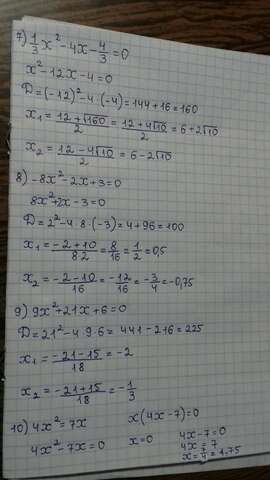 7) 1/3 x² - 4x - 4/3 = 0
x² - 12x - 4 = 0
Д = (-12)² - 4 · (-4) = 144 + 16 = 160
x₁ = (12 + √160)/2 = (12 + 4√10)/2 = 6 + 2√10
x₂ = (12 - 4√10)/2 = 6 - 2√10
8) -8x² - 2x + 3 = 0
8x² + 2x - 3 = 0
Д = 2² - 4 · 8 · (-3) = 4 + 96 = 100
x₁ = (-2 + 10)/(8·2) = 8/16 = 1/2 = 0,5
x₂ = (-2 - 10)/16 = -12/16 = -3/4 = -0,75
9) 9x² + 21x + 6 = 0
Д = 21² - 4 · 9 · 6 = 441 - 216 = 225
x₁ = (-21 - 15)/18 = -2
x₂ = (-21 + 15)/18 = -1/3
10) 4x² = 7x
4x² - 7x = 0
x(4x - 7) = 0
x = 0
4x - 7 = 0
4x = 7
x = 7/4 = 1,75